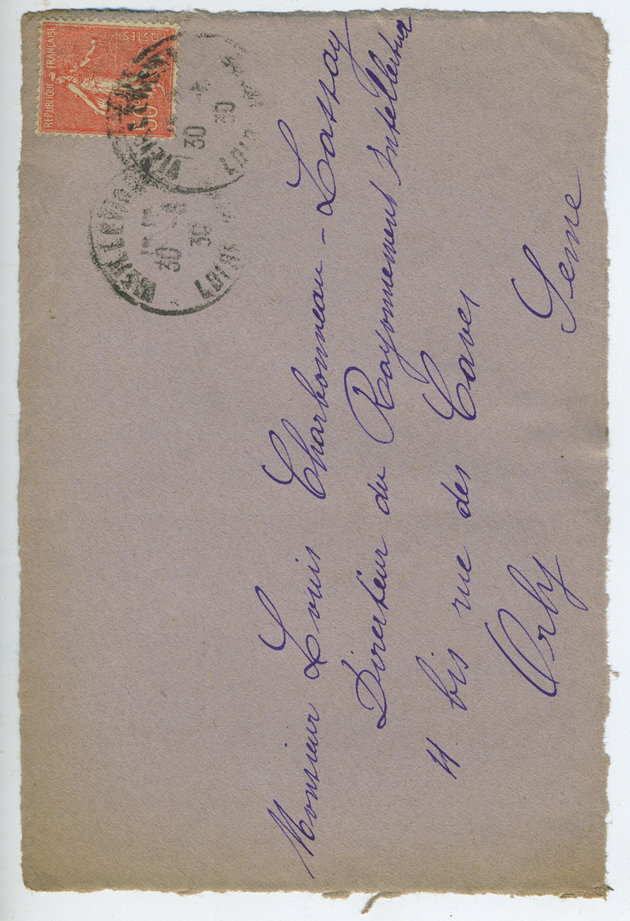 RÉPUBLIQUE FRANÇAISE
POSTES
50
30
30
30
30
LOIRE
Monsieur Louis Charbonneau-Lassay
Directeur du Rayonnement Intellectuel
11 bis rue des Caves
Orly Seine